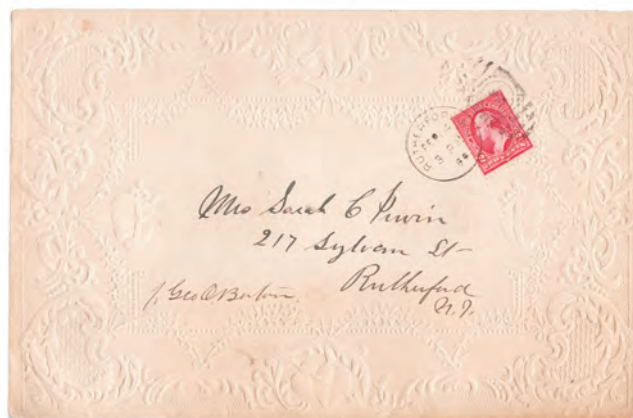 RUTHERFORD
FEB
Mrs Sarah C
217 Sylvan St
Rutherford
N.J.
Geo O Burton